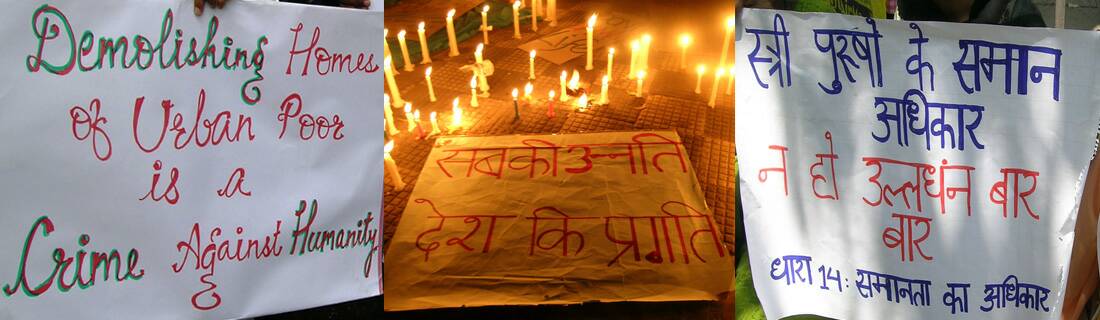 Demolishing Homes
of Urban Poor
is a
Crime Against Humanity
सबकी उन्नति
देश कि प्रगति
स्त्री पुरुषों के समान
अधिकार
न हो उल्लधंन बार
बार
धारा 14: समानता का अधिकार